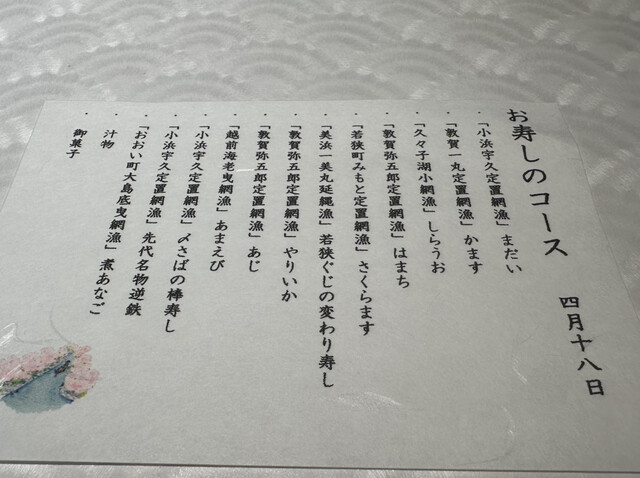 お寿しのコース　四月十八日
・「小浜宇久定置網漁」まだい
・「敦賀一丸定置網漁」かます
・「久々子湖小網漁」しらうお
・「敦賀弥五郎定置網漁」はまち
・「若狭町みもと定置網漁」さくらます
・「美浜一美丸延縄漁」若狭ぐじの変わり寿し
・「敦賀弥五郎定置網漁」やりいか
・「敦賀弥五郎定置網漁」あじ
・「越前海老曳網漁」あまえび
・「小浜宇久定置網漁」〆さばの棒寿し
・「おおい町大島底曳網漁」先代名物逆鉄
煮あなご
・汁物
・御菓子